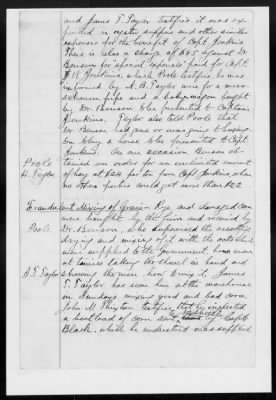 and James T. Taylor testifies it was ex-
pended in oyster suppers and other similar
expenses for the benefit of Capt. Jenkins.
There is also a charge of $45 against Dr.
Benson for "special expenses" paid for Capt.
J. W. Jenkins, which Poole testifies he was
informed by A. B. Taylor were for a meer-
schaum pipe and a baby wagon bought
by Dr. Benson to be presented to Captain
Jenkins. Taylor also told Poole that
Dr. Benson had gone or was going to
buy a horse to be presented to Capt.
Jenkins. On one occasion Benson ob-
Poole tained an order for an unlimited amount
Taylor of hay at $24 per ton from Capt. Jenkins, when
no other parties could get more than $22
Fraudulent Mixing of Grain- Rye and damaged corn
were bought by the firm and stored by
Poole Dr. Benson, who supervised the assorting,
drying and mixing of it with the oats which
were supplied to the Government, and was
at times taking the shovel in hand and
T. Taylor showing the men how to mix it. James
T. Taylor has seen him at the warehouse
on Sundays mixing good and bad corn.
John M. Thixton testifies that he inspected
a boat load of corn by Capt.
Black, which he understood was supplied